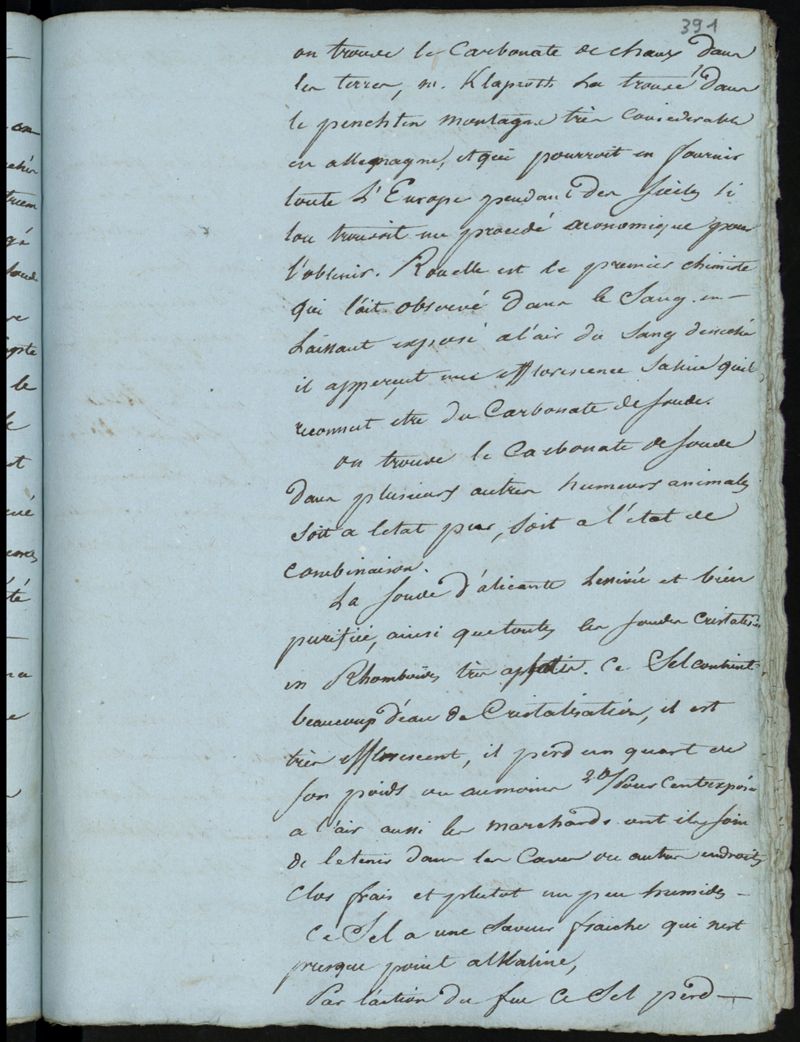 391
on trouve le Carbonate de chaux dans
les terres, m. Klaproth La trouvé dans
le penchten montagne très considerable
en allemagne, et qui pourroit en fournir
toute L'Europe pendant des siecles si
lon trouvoit un procédé œconomique pour
l'obtenir. Rouelle est le premier chimiste
qui l'ait observé dans le Sang. en
Laissant exposé a l'air du Sang desseché
il apperçut une efflorescence Saline quil
reconnut etre du Carbonate de soude.
on trouve le Carbonate de soude
dans plusieurs autres humeurs animales
soit a letat pur, soit a l'état de
combinaison.
La soude d'alicante Lessivée et bien
purifiée, ainsi que toutes les soudes cristalise
en Rhomboides très applatis. Ce Sel contient
beaucoup d'eau de Cristalisation, il est
très efflorescent, il perd un quart de
son poids ou aumoins 20/pour Cent exposé
a l'air aussi les marchands ont ils soin
de le tenir dans les Caves ou autres endroits
clos frais et plutot un peu humides -
Ce Sel a une Saveur fraiche qui nest
presque point alKaline,
Par l'action du feu Ce Sel perd —